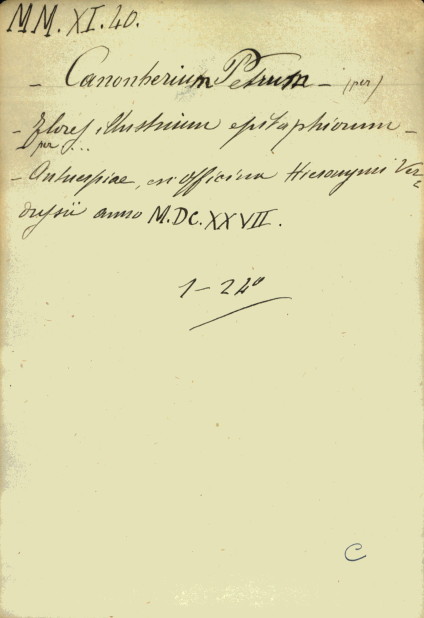 MM. XI. 40.
- Canonherium Petrum - (per)
- Flores illustrium epitaphiorum -
per ...
- Antuerpiae, ex officina Hieronymi Ver=
dusii anno M.DC.XXVII.
1-24º
C